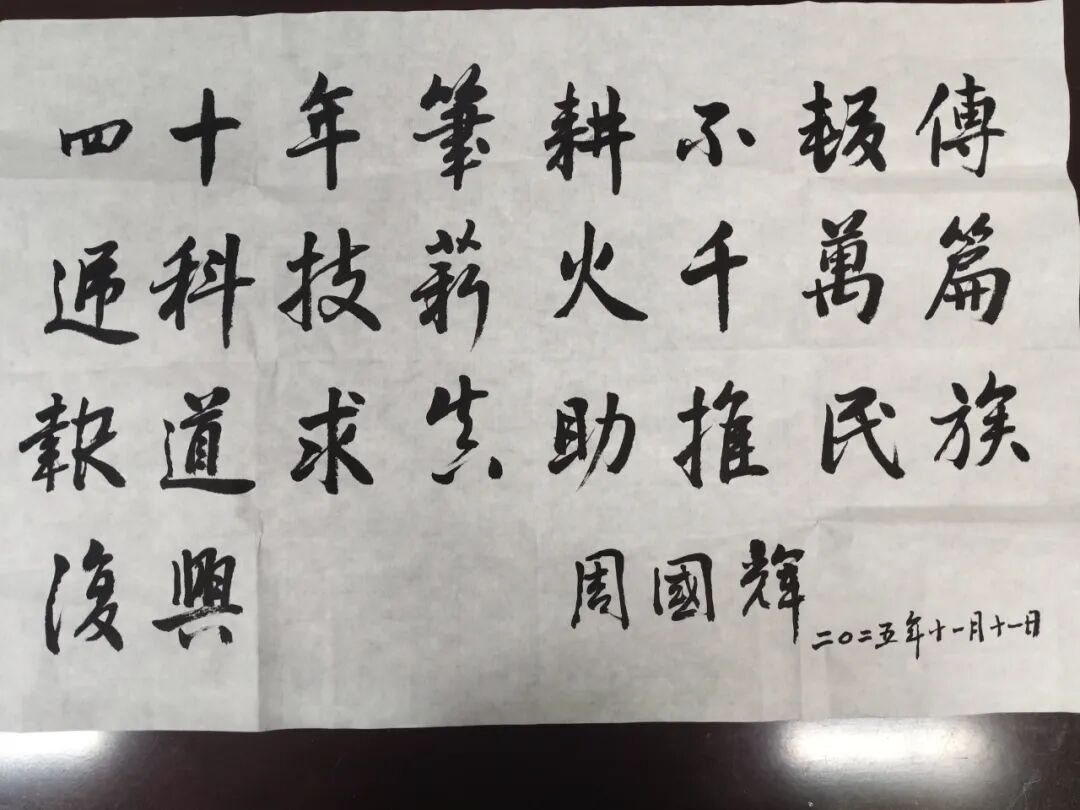 四十年筆耕不輟傳
遞科技薪火千萬篇
報道求真助推民族
復興
周國輝
二〇二五年十一月十一日